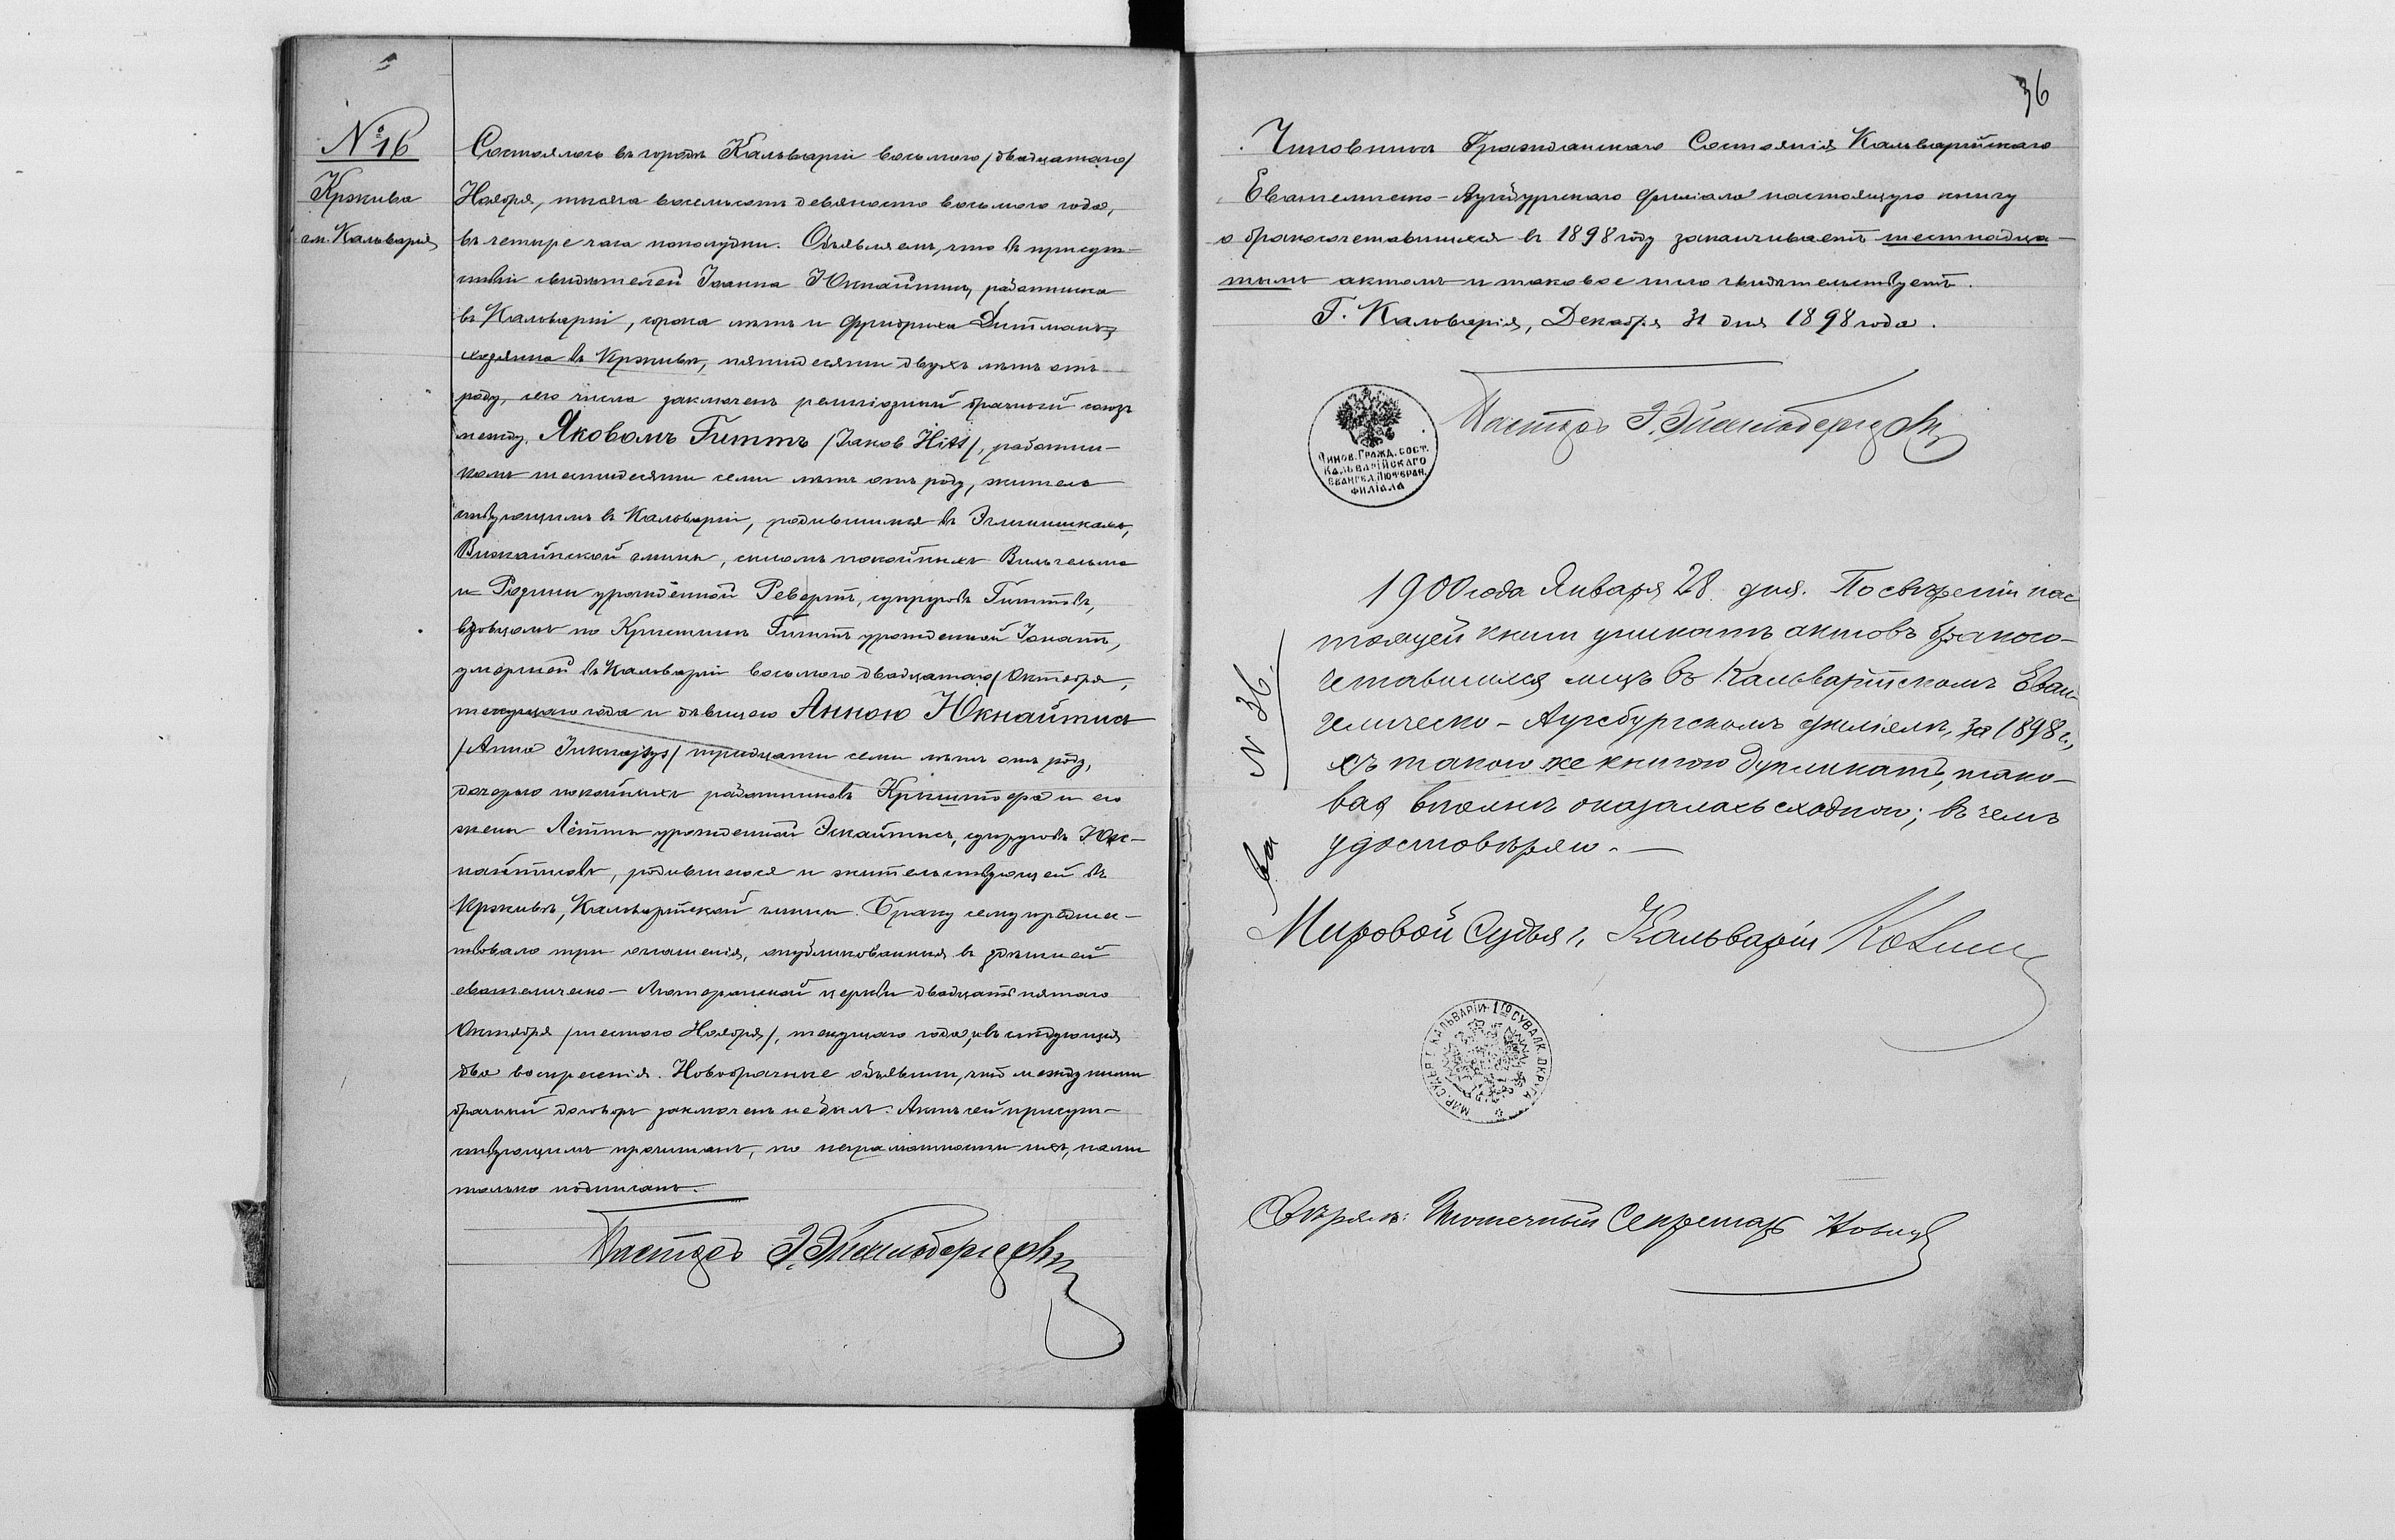 № 16
Кржива
гм. Кальварія
Состоялось въ городѣ Кальваріи восьмого /двадцатаго/
Ноября, тысяча восемьсотъ девяносто восьмого года,
въ четыре часа пополудни. Объявляемъ, что въ присут-
ствіи свидѣтелей Іоанна Юкнайтиса, работника
въ Кальваріи, сорока лѣтъ и Фридриха Дитмана,
хозяина въ Крживѣ, пятидесяти двухъ лѣтъ отъ
роду, сего числа заключенъ религіозный брачный союзъ
между Яковомъ Гиттъ /Jakob Hitt/, работни-
комъ шестидесяти семи лѣтъ отъ роду, житель
ствующимъ въ Кальваріи, родившимся въ
Вижайнской гмины, сыномъ покойныхъ Вильгельма
и Розины урожденной Реверт, супруговъ Гиттовъ,
вдовцомъ по Кристинѣ Гиттъ урожденной
умершей въ Кальваріи восьмого /двадцатаго/ Октября,
текущаго года и дѣвицею Анною Юкнайтисъ
/Anna Juknajtys/ тридцати семи лѣтъ отъ роду,
дочерью покойныхъ работниковъ Криштофа и его
жены урожденной супруговъ Юк-
найтисовъ, родившеюся и жительствующей въ
Крживѣ, Кальварійской гмины. Браку сему предшес-
твовало три оглашенія, опубликованныя въ здѣшней
евангелическо-Лютеранской церкви двадцать пятаго
Октября /шестого Ноября/, текущаго года, и въ слѣдующія
два воскресенія. Новобрачные объявили, что между ними
брачный договоръ заключенъ не былъ. Актъ сей присут-
ствующимъ прочитанъ, по неграмотности ихъ, нами
только подписанъ.
Пасторъ
36
Чиновникъ Гражданскаго Состоянія Кальварійскаго
Евангелическо-Аугсбургскаго филіала настоящую книгу
о бракосочетавшихся въ 1898 году заканчиваетъ шестнадца-
тымъ актомъ и таковое число свидѣтельствуетъ.
Г. Кальварія, Декабря 31 дня 1898 года.
Пасторъ
Чинов. Гражд. сост.
Кальварійскаго
Евангел. Лютеран.
филіала
1900 года Января 28 дня. По свѣреніи нас
тоящей книги уникатъ актовъ бракосо-
четавшихся лицъ въ Кальварійскомъ Еван
гелическо-Аугсбургскомъ филіалѣ, за 1898 г.,
съ такою же книгою дупликатъ, тако-
вая вполнѣ оказалась сходною; въ чемъ
удостовѣряю.
За № 36.
Мировой Судья г. Кальваріи
МИР. СУДЬЯ Г. КАЛЬВАРІИ 1го СУВАЛК. ОКРУГА
Свѣрялъ: Ипотечный Секретарь